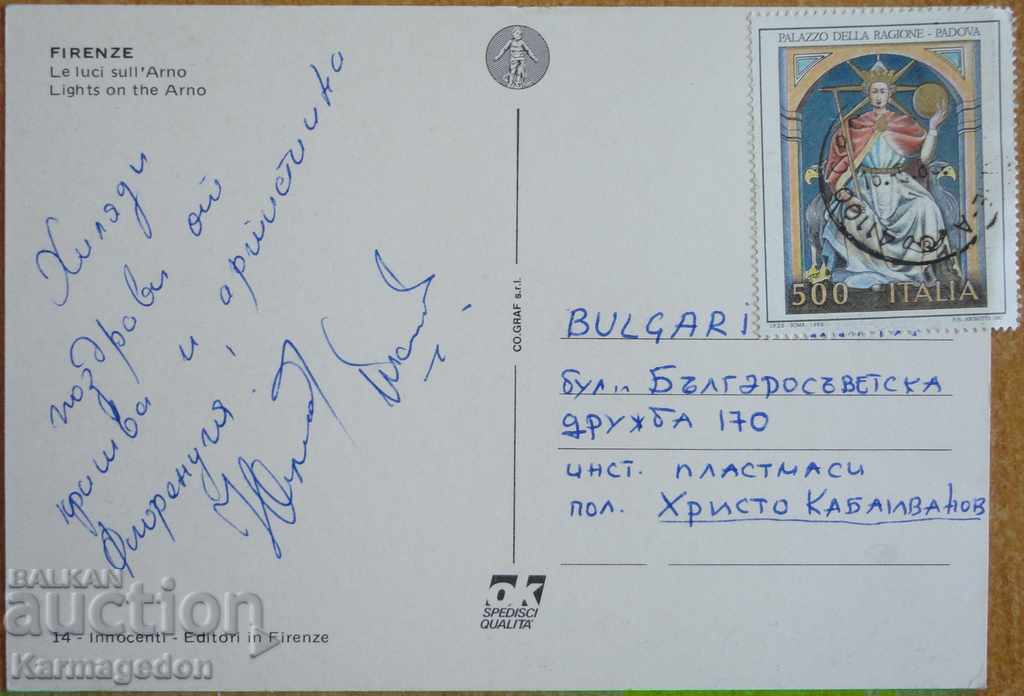 FIRENZE
Le luci sull'Arno
Lights on the Arno
Хиляди
поздрави от
красива и аристична
Флоренция!
CO.GRAF s.r.l.
PALAZZO DELLA RAGIONE - PADOVA
500 ITALIA
BULGARI
бул. Българосъветска
дружба 170
инст. пластмаси
пол. Христо Кабаиванов
OK
SPEDISCI
QUALITÀ
14 - Innocenti - Editori in Firenze
BALKAN
auction
Karmagedon